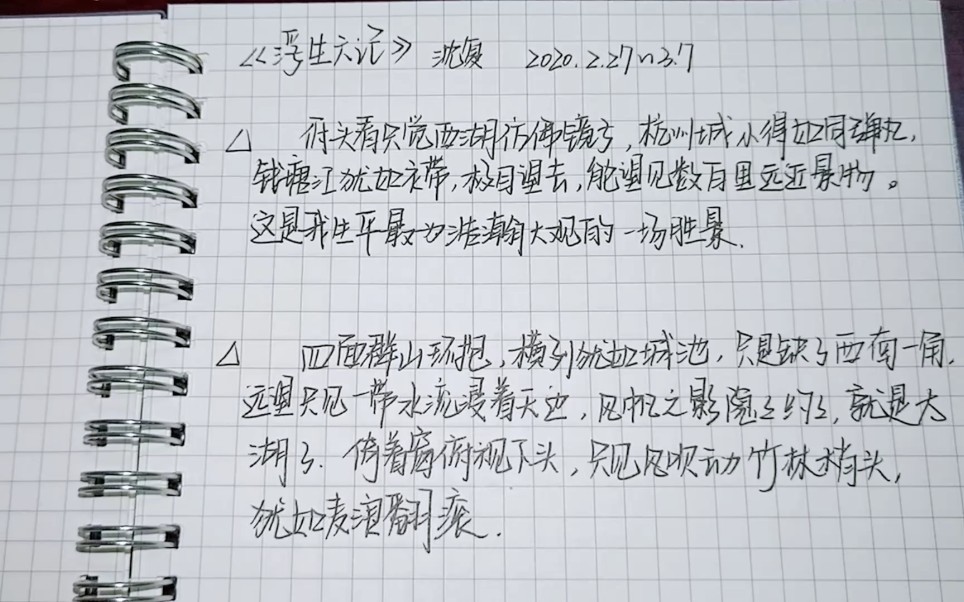 《浮生六记》 沈复 2020.2.27~3.7
△ 府头看只觉西湖仿佛镜子,杭州城小得如同弹丸,
钱塘江犹如衣带,极目望去,能望见数百里远近景物。
这是我生平最为浩瀚大观的一场胜景.
△ 四面群山环抱,横列犹如城池,只是缺了西南一角,
远望只见一带水流浸着天边,风帆之影隐隐约约,就是太
湖了.倚着窗俯视下头,只见风吹动竹林梢头,
犹如麦浪翻滚.